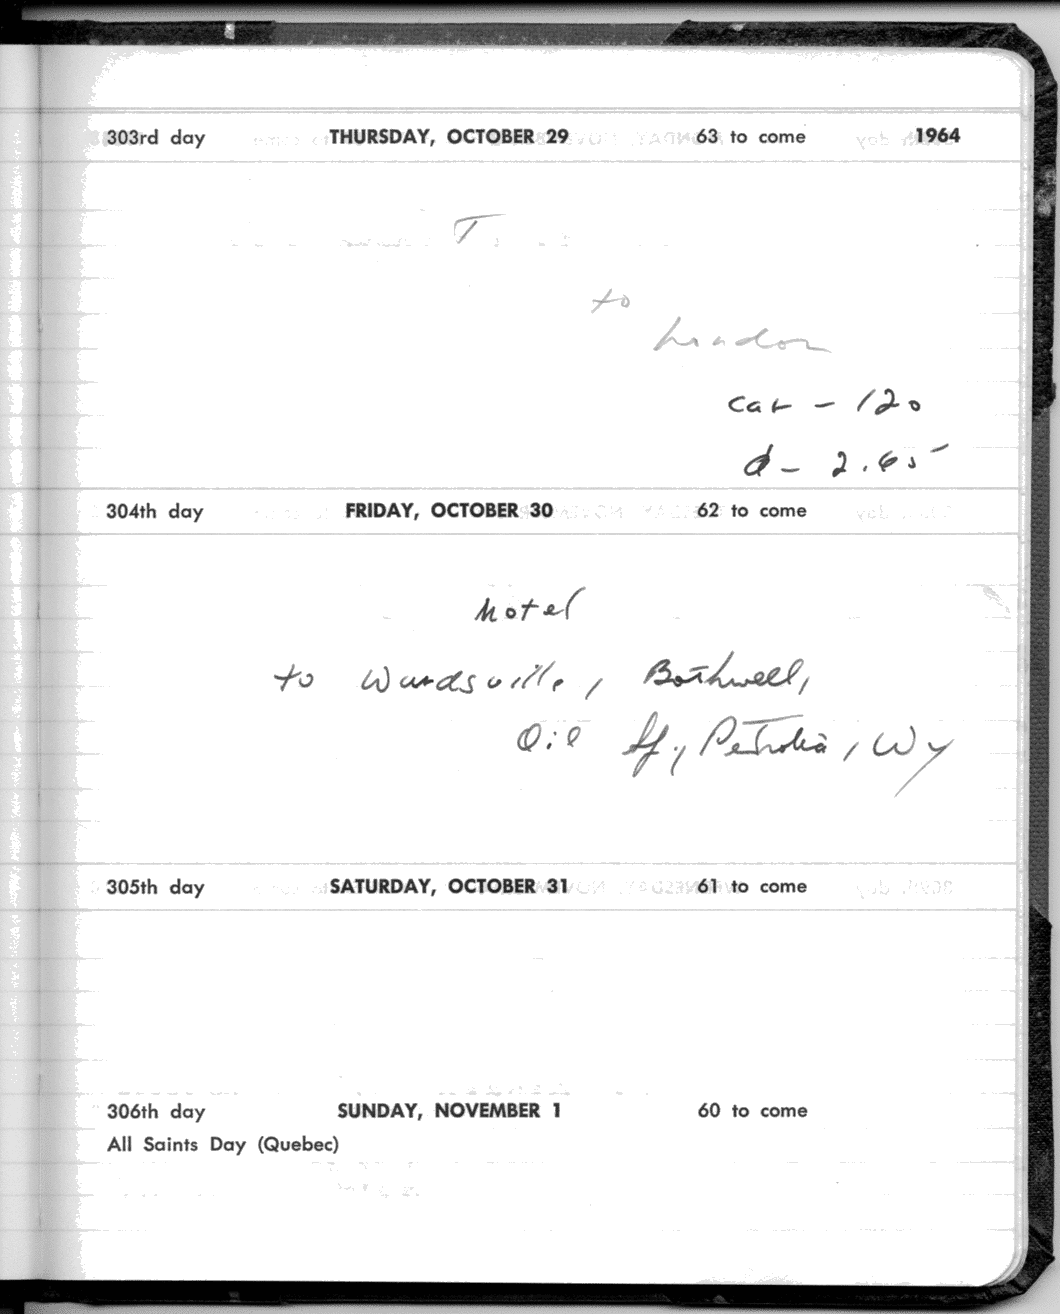 303rd day THURSDAY, OCTOBER 29 63 to come 1964
T
to
London
car - 120
d - 2.65
304th day FRIDAY, OCTOBER 30 62 to come
Motel
to Wardsville, Bothwell,
Oil Sp, Petrolia, Wy
305th day SATURDAY, OCTOBER 31 61 to come
306th day SUNDAY, NOVEMBER 1 60 to come
All Saints Day (Quebec)